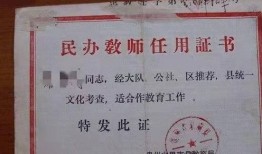 民办教师任用証书
同志，经大队、公社、区推荐，县统一
文化考查，适合作教育工作。
特发此证